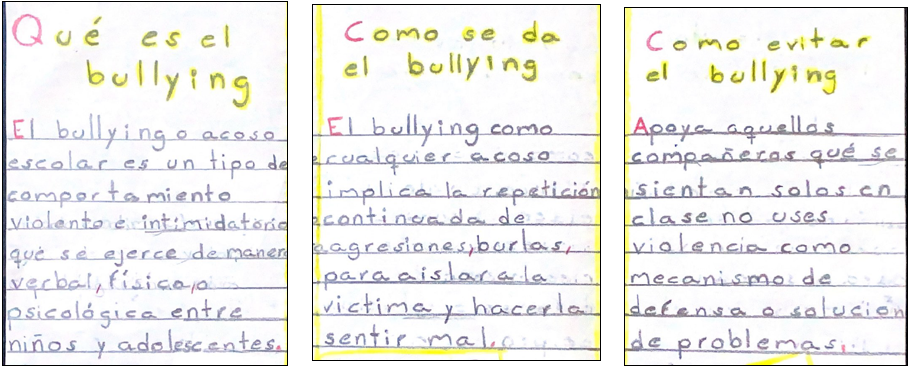 Qué es el
bullying
El bullying o acoso
escolar es un tipo de
comportamiento
violento e intimidatorio
qué se ejerce de manera
verbal, física, o
psicológica entre
niños y adolescentes.
Como se da
el bullying
El bullying como
cualquier acoso
implica la repetición
continuada de
agresiones, burlas,
para aislar a la
victima y hacerla
sentir mal.
Como evitar
el bullying
Apoya aquellos
compañeros qué se
sientan solos en
clase no uses
violencia como
mecanismo de
defensa o solución
de problemas.